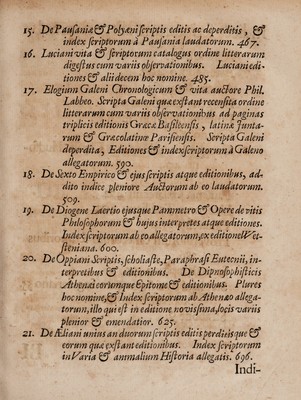 15. De Pausania & Polyæni scriptis editis ac deperditis, &
index scriptorum à Pausania laudatorum. 467.
16. Luciani vita & scriptorum catalogus ordine litterarum
digestus cum variis observationibus. Luciani edi-
tiones & alii decem hoc nomine. 485.
17. Elogium Galeni Chronologicum & vita auctore Phil.
Labbeo. Scripta Galeni quæ exstant recensita ordine
litterarum cum variis observationibus ad paginas
triplicis editionis Græcæ Basileensis, latinæ Junta-
rum & Græcolatinæ Parisiensis. Scripta Galeni
deperdita, Editiones & index scriptorum à Galeno
allegatorum. 590.
18. De Sexto Empirico & ejus scriptis atque editionibus, ad-
dito indice pleniore Auctorum ab eo laudatorum.
509.
19. De Diogene Laertio ejusque Pammetro & Opere de vitis
Philosophorum & hujus interpretes atque editiones.
Index scriptorum ab eo allegatorum, ex editione Wet-
steniana. 600.
20. De Oppiani Scriptis, scholiaste, Paraphrasi Eutecnii, in-
terpretibus & editionibus. De Dipnosophisticis
Athenæi eorumque Epitome & editionibus. Plures
hoc nomine, & Index scriptorum ab Athenæo allega-
torum, illo qui est in editione novissima, locis variis
plenior & emendatior. 625.
21. De Æliani unius an duorum scriptis editis perditis que &
eorum quæ exstant editionibus. Index scriptorum
in Varia & animalium Historia allegatis. 696.
Indi-